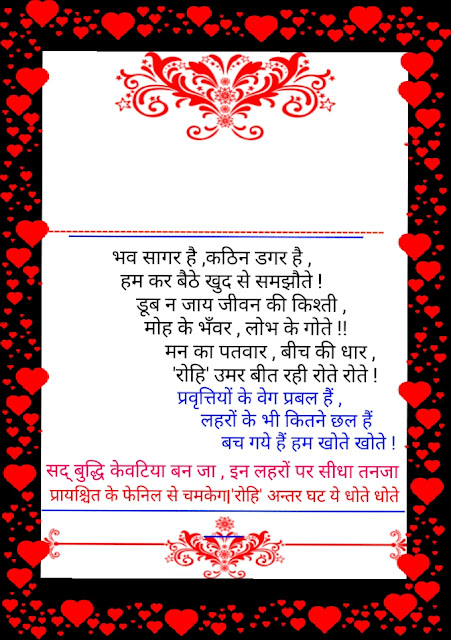 भव सागर है ,कठिन डगर है ,
हम कर बैठे खुद से समझौते !
डूब न जाय जीवन की किश्ती ,
मोह के भँवर , लोभ के गोते !!
मन का पतवार , बीच की धार ,
'रोहि' उमर बीत रही रोते रोते !
प्रवृत्तियों के वेग प्रबल हैं ,
लहरों के भी कितने छल हैं
बच गये हैं हम खोते खोते !
सद् बुद्धि केवटिया बन जा , इन लहरों पर सीधा तनजा
प्रायश्चित के फेनिल से चमकेगा|'रोहि' अन्तर घट ये धोते धोते